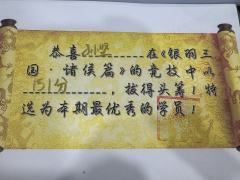 恭喜 在《银羽三
国 诸侯篇》的竞技中以
151分,拔得头筹!特
选为本期最优秀的学员!